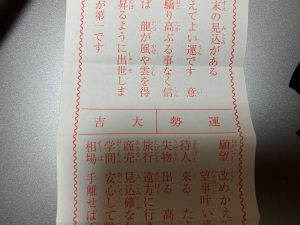 末の見込がある
えてよい運です 意
驕り高ぶる事なく信
ば 龍が風や雲を得
昇るように出世しま
が第一です
運勢
大吉
願望 改めかえて
望事叶い
待人 来る たよ
失物 出る 高
旅行 遠方に行
商売 見込確な
学問 安心して
相場 手離せば